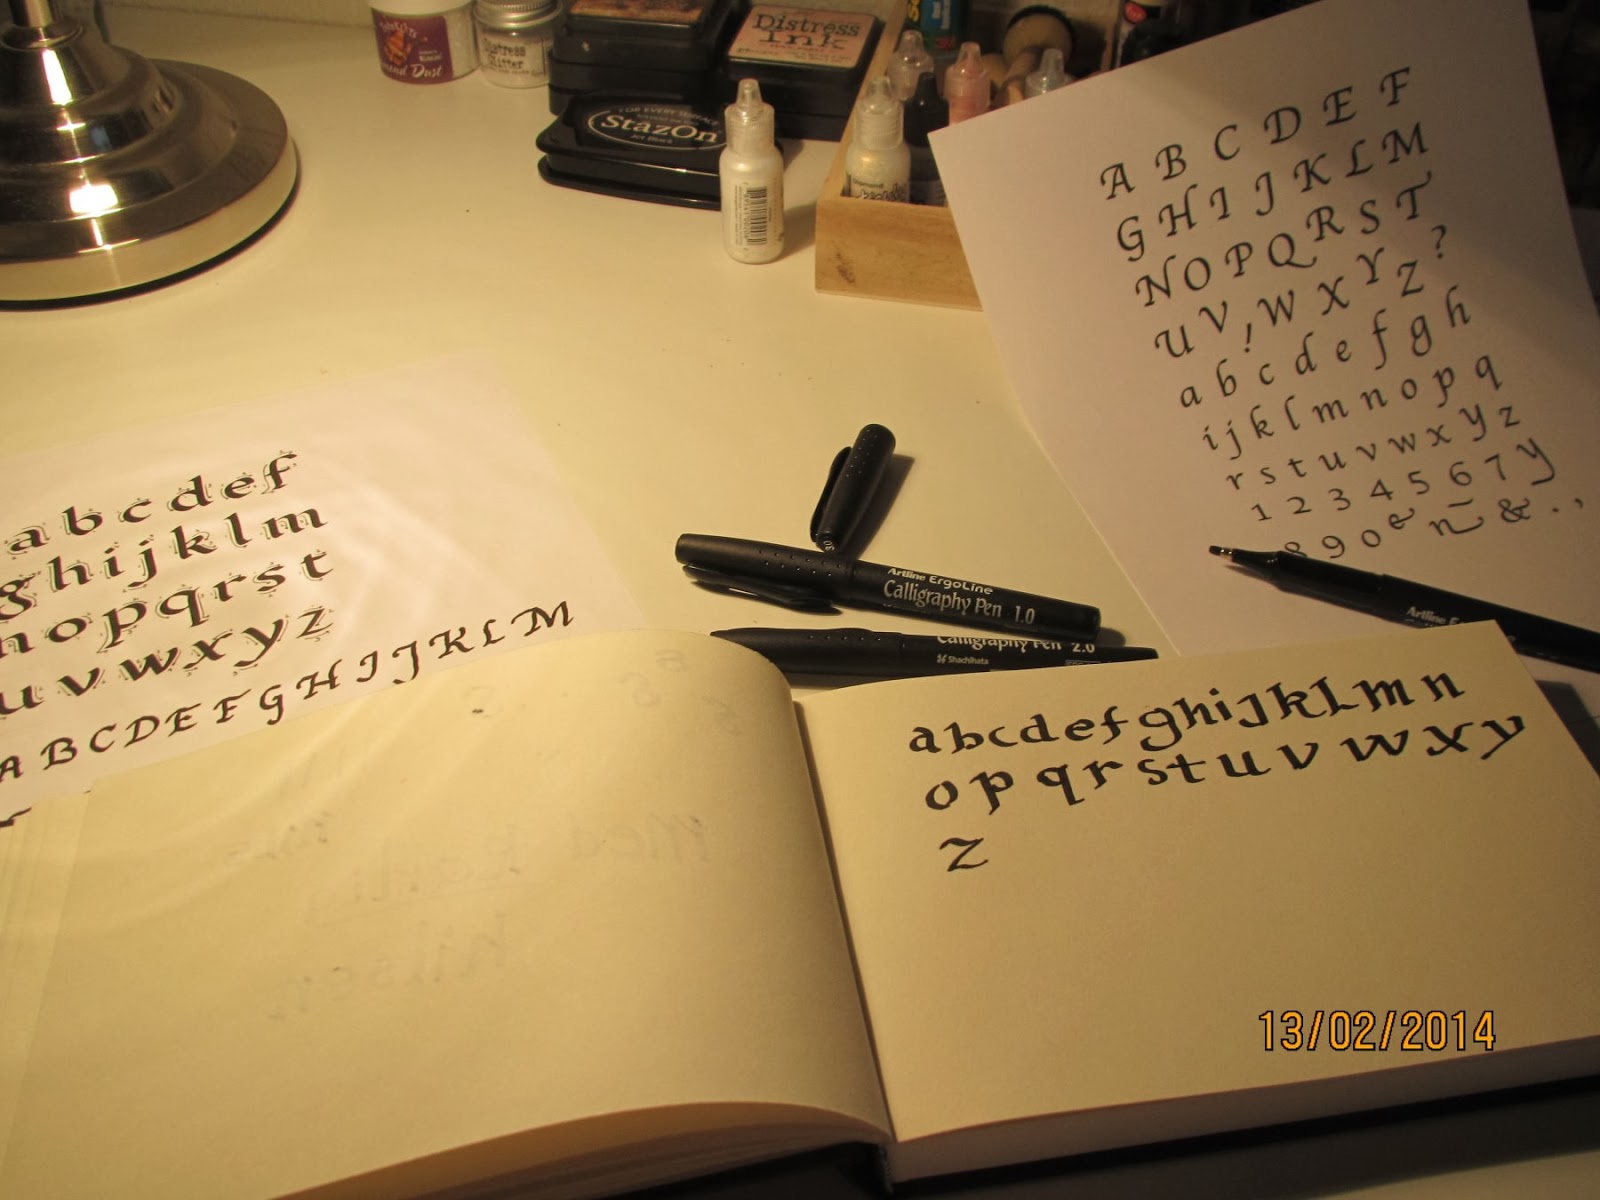 Distress
Glitter
Distress
Ink
StazOn
A B C D E F
G H I J K L M
N O P Q R S T
U V ! W X Y Z ?
a b c d e f g h
i j k l m n o p q
r s t u v w x y z
1 2 3 4 5 6 7 y
8 9 0 e n & . ,
a b c d e f
g h i j k l m
n o p q r s t
u v w x y z
A B C D E F G H I J K L M
Artline ErgoLine
Calligraphy Pen 1.0
Calligraphy Pen 2.0
Shachihata
Artline
3.0
a b c d e f g h i J k L m n
o p q r s t u v w x y
z
13/02/2014